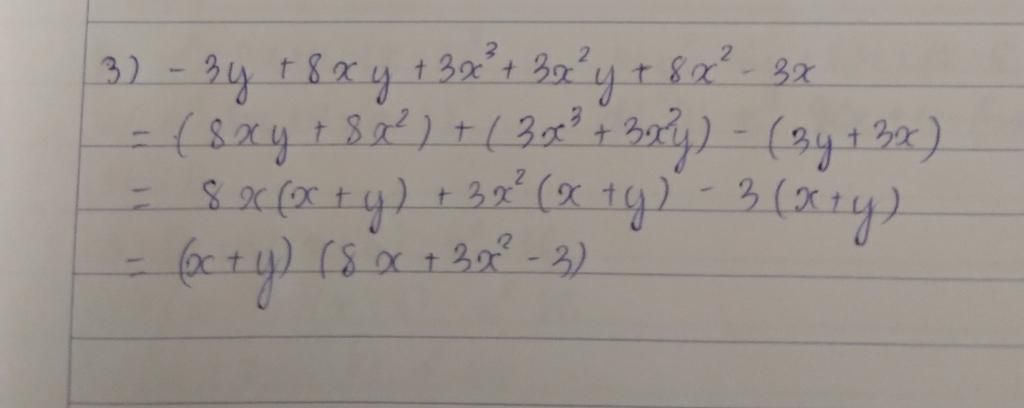 3) - 3y + 8xy + 3x³ + 3x²y + 8x² - 3x
= (8xy + 8x²) + (3x³ + 3x²y) - (3y + 3x)
= 8x(x + y) + 3x²(x + y) - 3(x + y)
= (x + y) (8x + 3x² - 3)